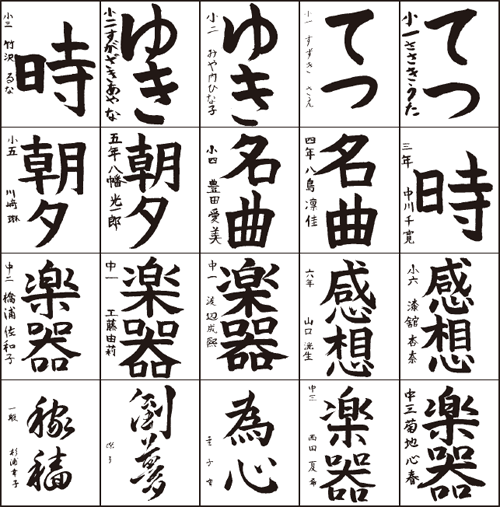 てつ
小一 ささき うた
てつ
小一 すずき さえ
ゆき
小二 ひな子
ゆき
小二 すがさき あやな
時
小三 竹沢 るな
時
三年 中川千寛
名曲
四年 八島 凛佳
名曲
小四 豊田愛美
朝夕
五年 八幡 光一郎
朝夕
小五 川崎 琳
感想
小六
感想
六年 山口 洸生
楽器
中一 渡辺成熙
楽器
中一 工藤由莉
楽器
中二 橋浦 佐和子
楽器
中三 菊地 心春
楽器
中三 西田 夏希
為心
夢
稼穡
一般 杉浦幸子